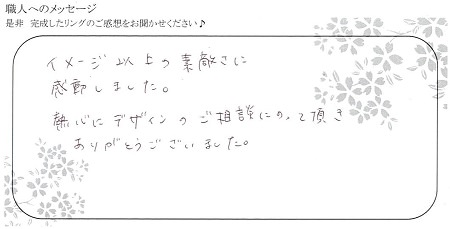 職人へのメッセージ
是非 完成したリングのご感想をお聞かせください♪
イメージ以上の素敵さに
感動しました。
熱心にデザインのご相談にのって頂き
ありがとうございました。